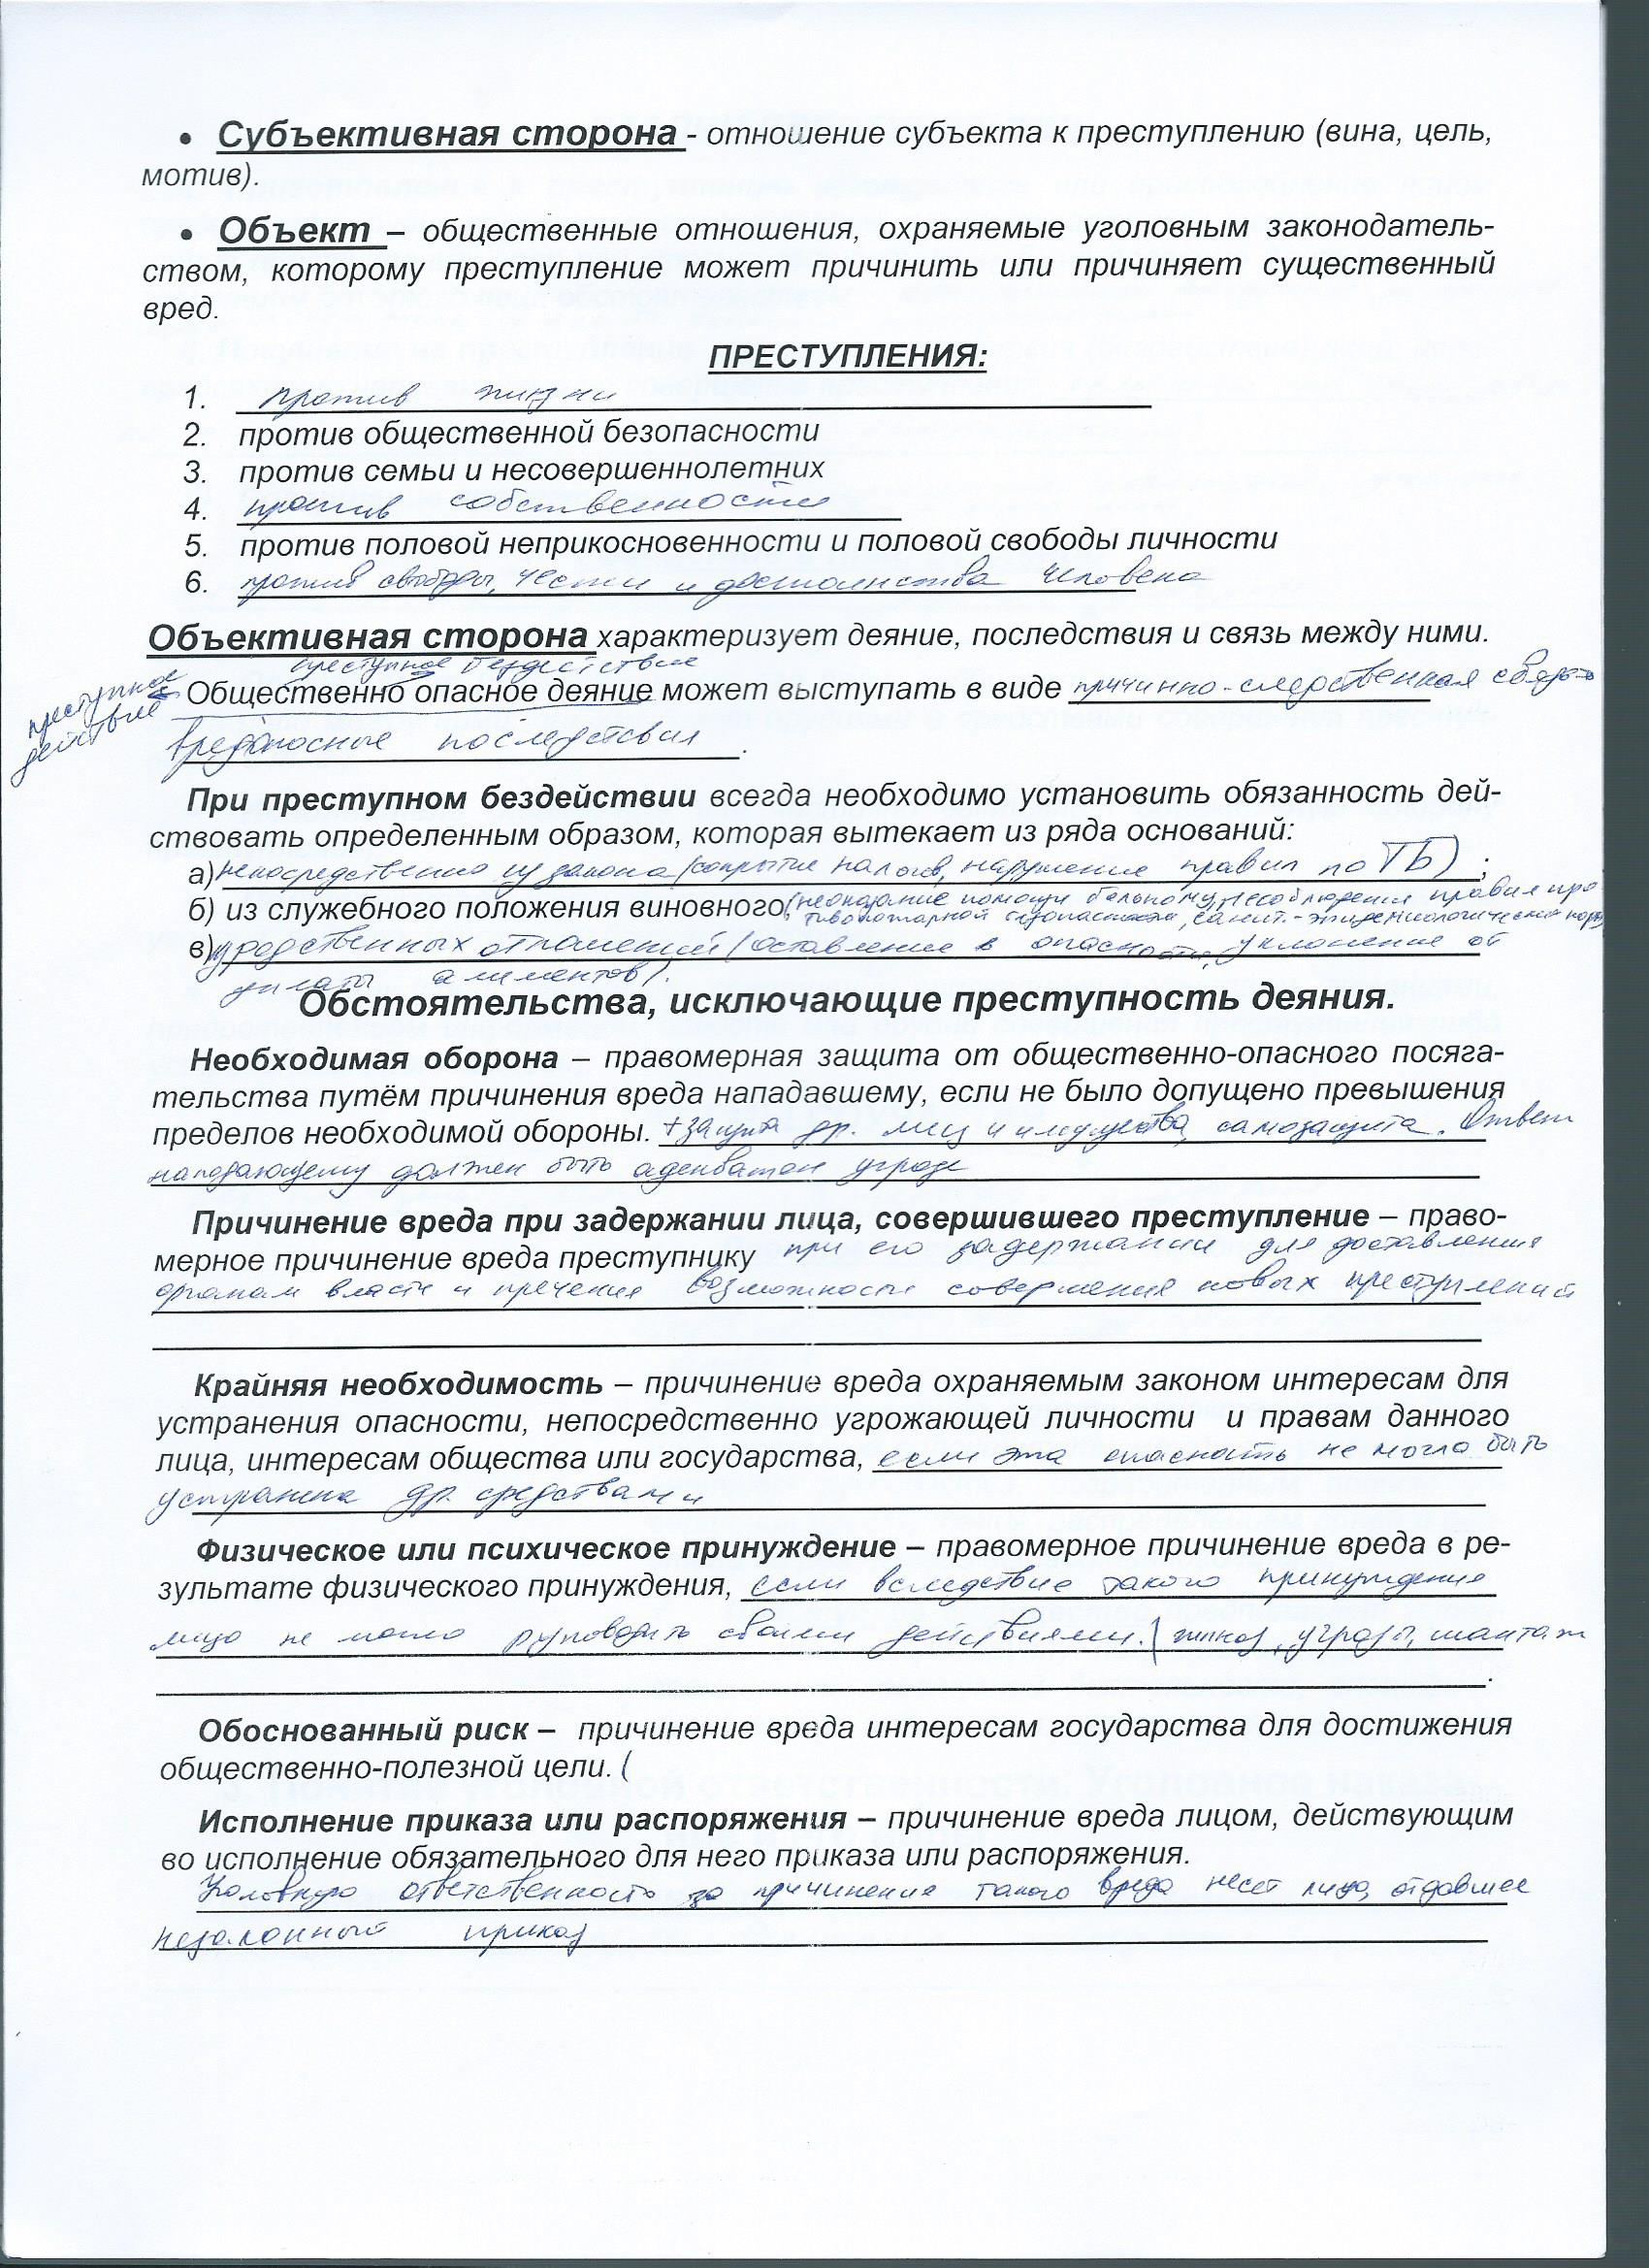 • Субъективная сторона - отношение субъекта к преступлению (вина, цель,
мотив).
• Объект – общественные отношения, охраняемые уголовным законодатель-
ством, которому преступление может причинить или причиняет существенный
вред.
ПРЕСТУПЛЕНИЯ:
1. против жизни
2. против общественной безопасности
3. против семьи и несовершеннолетних
4. против собственности
5. против половой неприкосновенности и половой свободы личности
6. против свободы, чести и достоинства человека
Объективная сторона характеризует деяние, последствия и связь между ними.
преступное бездействие
преступное
действие
Общественно опасное деяние может выступать в виде причинно-следственная связь
вредоносные последствия.
При преступном бездействии всегда необходимо установить обязанность дей-
ствовать определенным образом, которая вытекает из ряда оснований:
а) непосредственно из закона (сокрытие налогов, нарушение правил по ТБ);
б) из служебного положения виновного (неоказание помощи больному, несоблюдении правил про-
тивопожарной безопасности, санит.-эпидемиологических норм
в) из родственных отношений (оставление в опасности, уклонение от
уплаты алиментов).
Обстоятельства, исключающие преступность деяния.
Необходимая оборона – правомерная защита от общественно-опасного посяга-
тельства путём причинения вреда нападавшему, если не было допущено превышения
пределов необходимой обороны. + защита др. лиц и имущества, самозащита. Ответ
нападающему должен быть адекватен угрозе
Причинение вреда при задержании лица, совершившего преступление – право-
мерное причинение вреда преступнику при его задержании для доставления
органам власти и пречения возможности совершения новых преступлений
Крайняя необходимость – причинение вреда охраняемым законом интересам для
устранения опасности, непосредственно угрожающей личности и правам данного
лица, интересам общества или государства, если эта опасность не могла быть
устранена др. средствами
Физическое или психическое принуждение – правомерное причинение вреда в ре-
зультате физического принуждения, если вследствие такого принуждения
лицо не могло руководить своими действиями. ( угрозы, шантаж
.
Обоснованный риск – причинение вреда интересам государства для достижения
общественно-полезной цели. (
Исполнение приказа или распоряжения – причинение вреда лицом, действующим
во исполнение обязательного для него приказа или распоряжения.
Уголовную ответственность за причинение такого вреда несет лицо, отдавшее
незаконный приказ